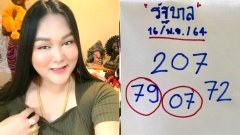 รัฐบาล
16/ม.ย./64
207
79 07 72